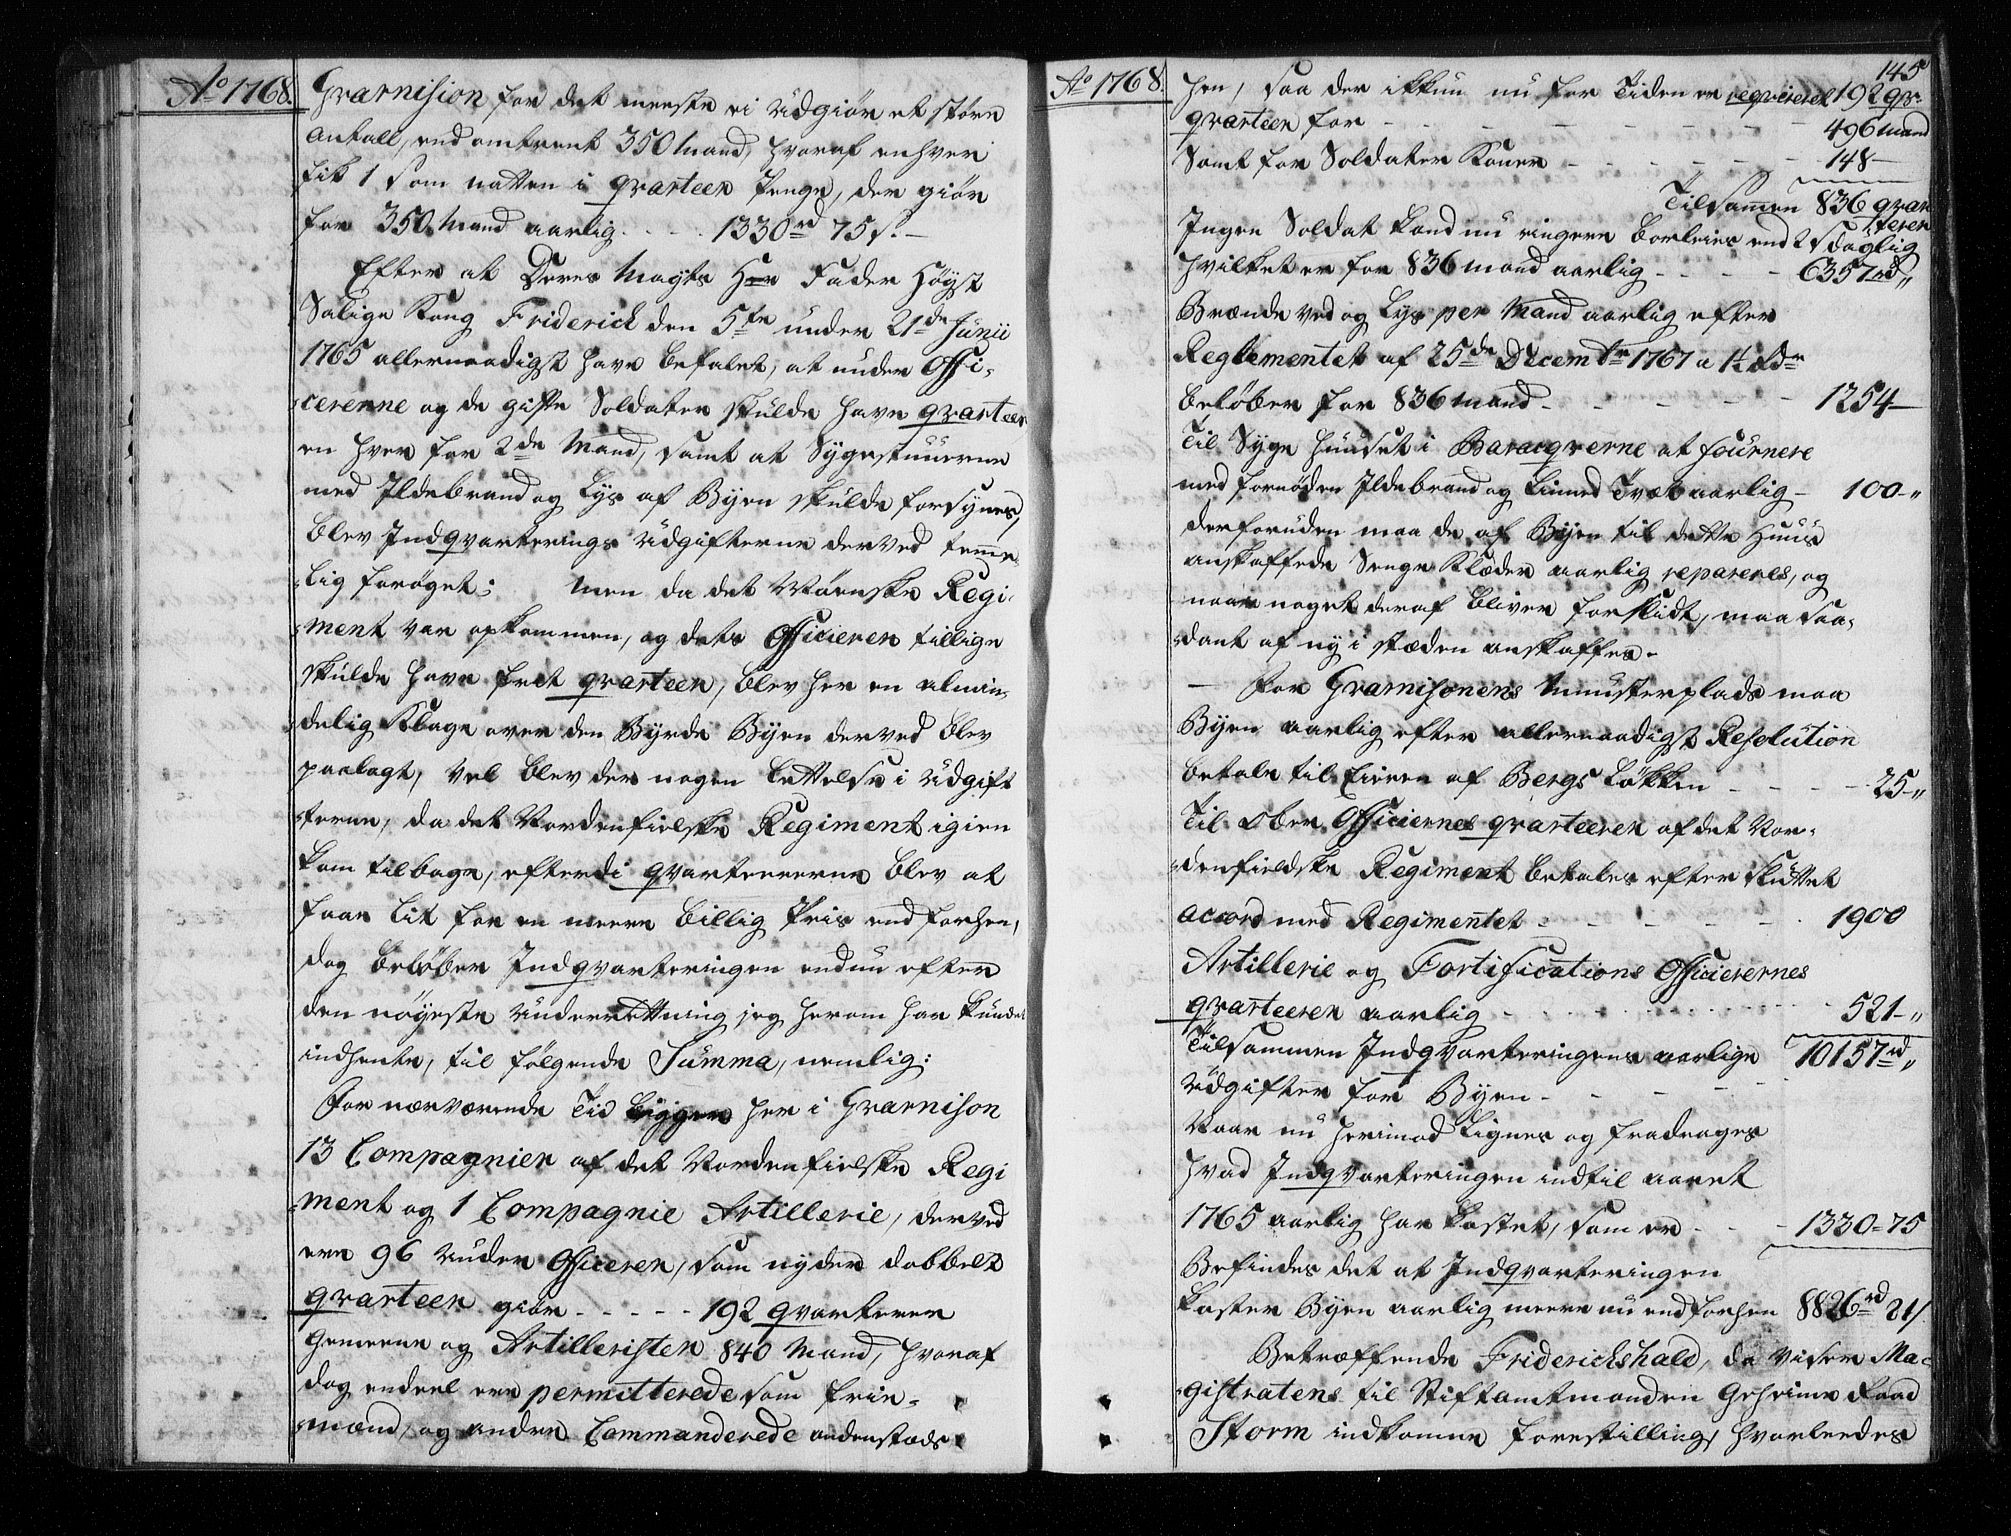 Ao 1768.
Gvarnision for det meeste ei udgiør et større
antall, end omtrent 350 Mand, hvoraf enhver
fik 1 s om natten i qvarteer Penge, der giør
for 350 Mand aarlig - - - - 1330 rd 75 s. -
Efter at Deres Mayts Hr Fader Høyst
Salige Kong Friderick den 5te under 21de Junii
1765 allernaadigst have befalet, at under Offi-
cererne og de gifte Soldater skulde have qvarteer
en hver for 2de Mand, samt at Sygestuuerne
med Ildebrand og Lys af Byen skulde forsynes,
blev Indqvarterings Udgifterne derved temme
lig forøget; men da det Mørenske Regi-
ment var opkommen, og dets Officierer tillige
skulde have frit qvarteer, blev her en almin-
delig Klage over den Byrde Byen derved blev
paalagt, vel blev der nogen lettelse i Udgift
terne, da det Nordenfielske Regiment igien
kom tilbage, efterdi qvartererne blev at
faae lit for en meere billig Priis end forhen,
dog beløber Indqvarteringen endnu efter
den nøyeste Underrettning jeg herom har kundet
indhente, til følgende Summa, nemlig:
For nærværende Tid ligger her i Gvarnison
13 Compagnier af det Nordenfielske Regi
ment og 1 Compagnie Artillerie, derved
ere 96 Under Officerer, som nyder dobbelt
qvarteer giør - - - - - 192 qvarterer
Gemeene og Artillerister 840 Mand, hvoraf
dog endeel ere permitterede som frie-
mænd, og andre Commanderede andenstæds
Ao 1768.
145
hen, saa der ikkun nu for Tiden er reqvireret 192 qr.
qvarteer for - - - - - - - - 496 mand
Samt for Soldater Koner - - - - - - 148 -
Tilsammen 836 qvar
terer
Ingen Soldat kand nu ringere borleies end 2 s daglig
hvilket er for 836 mand aarlig - - - - - 6357 rd "
Brænde Ved og Lys per Mand aarlig efter
Reglementet af 25de Decembr 1767 a 1½ Rdr
beløber for 836 mand - - - - - - 1254 -
Til Syge Huuset i Baracqverne at fournere
med fornøden Ildebrand og Linned Tvæt aarlig - 100 - "
derforuden maa de af Byen til dette Huus
anskaffede Senge Klæder aarlig reparenes, og
naar noget deraf bliver forslidt, maa saa-
dant af ny i stæden anskaffes.
- For Gvarnisonens Munsterplads maa
Byen aarlig efter allernaadigst Resolution
betale til Eieren af Bergs Løkken - - - - - 25 - "
Til Ober Officiernes qvarteerer af det Nor-
denfieldske Regiment betales efter skuttet
accord med Regimentet - - - - - - 1900
Artillerie og Fortifications Officierernes
qvarteerer aarlig - - - - - - - - - 521 - "
Tilsammen Indqvarteringens aarlige 10157 rd "
Udgifter for Byen - - - - - -
Naar nu herimod lignes og fradrages
hvad Indqvarteringen indtil aaret
1765 aarlig har kostet, som er - - - 1330 = 75
Befindes det at Indqvarteringen
koster Byen aarlig meere nu end forhen 8826 rd 21 s
Betræffende Friderichshald, da viser Ma-
gistratens til Stiftamtmanden Geheime Raad
Storm indkomne Forestilling, hvorleedes